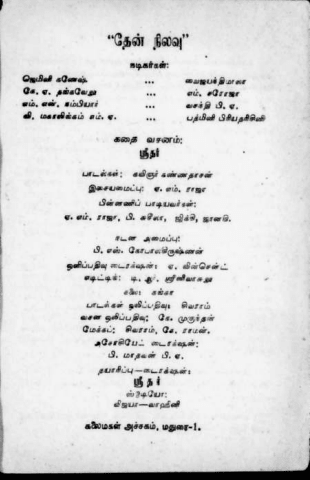 “தேன் நிலவு”
நடிகர்கள்:
ஜெமினி கணேஷ் ... வைஜயந்திமாலா
கே. ஏ. தங்கவேலு ... எம். சரோஜா
எம். என். நம்பியார் ... வசந்தி பி. ஏ.
வி. மகாலிங்கம் எம். ஏ. ... பத்மினி பிரியதர்சினி
கதை வசனம்:
ஸ்ரீதர்
பாடல்கள்: கவிஞர் கண்ணதாசன்
இசையமைப்பு: ஏ. எம். ராஜா
பின்னணிப் பாடியவர்கள்:
ஏ. எம். ராஜா, பி. சுசீலா, ஜிக்கி, ஜானகி.
நடன அமைப்பு:
பி. எஸ். கோபாலகிருஷ்ணன்
ஒளிப்பதிவு டைரக்ஷன்: ஏ. வின்சென்ட்
எடிட்டிங்: டி. ஆர். ஸ்ரீனிவாசலு
கலை: கங்கா
பாடல்கள் ஒலிப்பதிவு: சிவராம்
வசன ஒலிப்பதிவு: கே. முகுந்தன்
மேக்கப்: சிவராம், கே. ராமன்.
அசோசியேட் டைரக்ஷன்:
பி. மாதவன் பி. ஏ.
தயாரிப்பு—டைரக்ஷன்:
ஸ்ரீதர்
ஸ்டூடியோ:
விஜயா—வாஹினி
கலைமகள் அச்சகம், மதுரை-1.